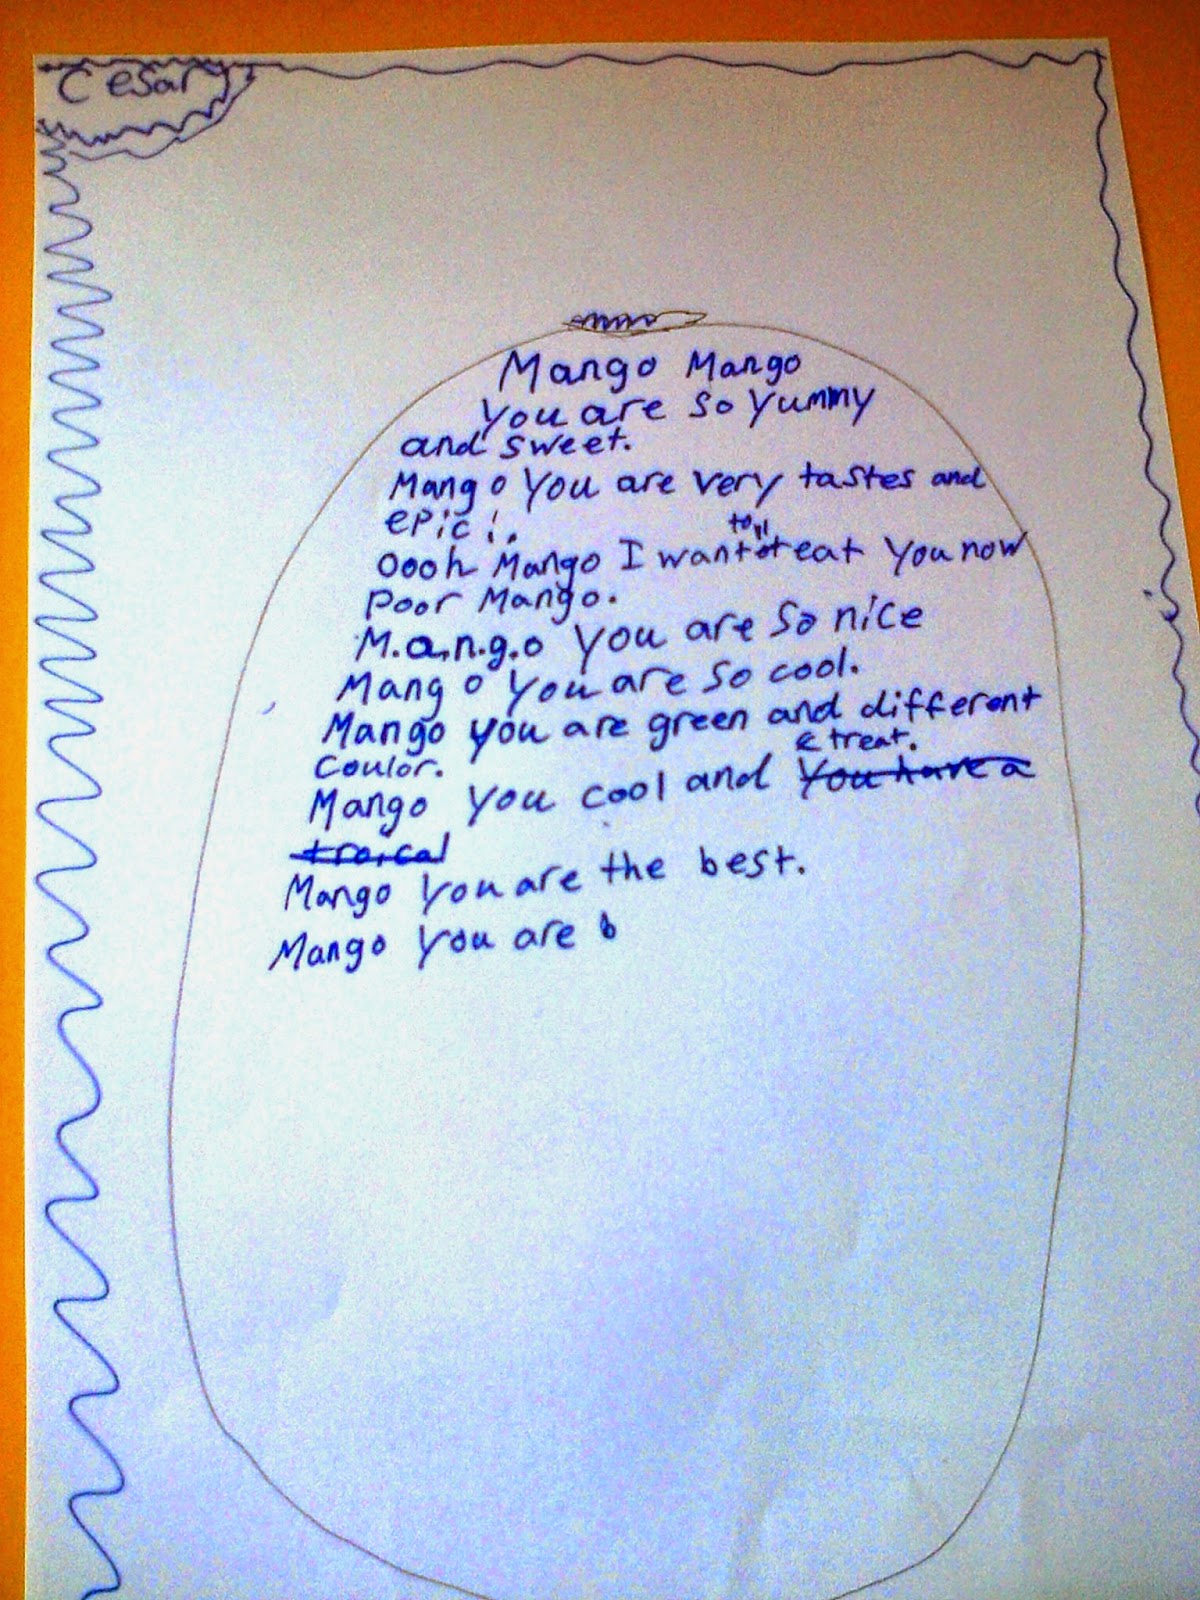 Cesar
Mango Mango
You are so Yummy
and sweet.
Mango You are very tastes and
epic!.
Oooh Mango I want to eat You now
Poor Mango.
M.a.n.g.o You are so nice
Mango You are so cool.
Mango you are green and different
Coulor.
treat.
Mango You cool and You have a
troical
Mango You are the best.
Mango You are b